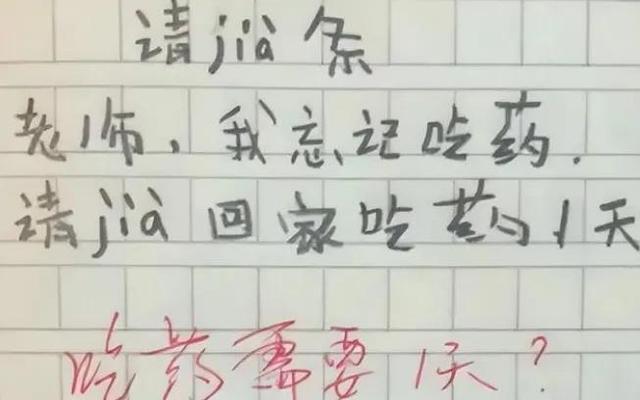 请jià条
老师,我忘记吃药.
请jià回家吃药1天
吃药需要1天?